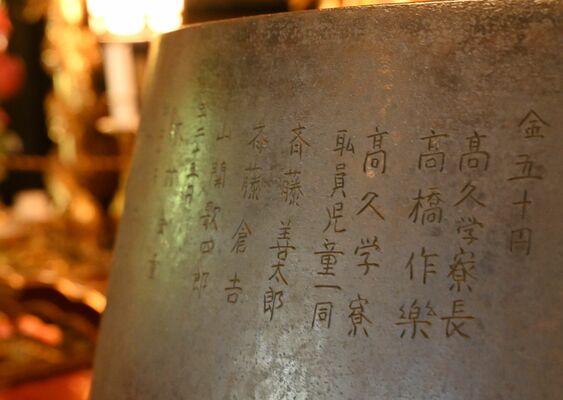 金五十円
高久学寮長
高橋作樂
高久学寮
職員児童一同
斉藤善太郎
斉藤倉吉
山開歌四郎
金二十五円